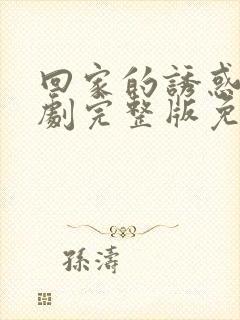 回家的誘惑
劇完整版免
孫濤